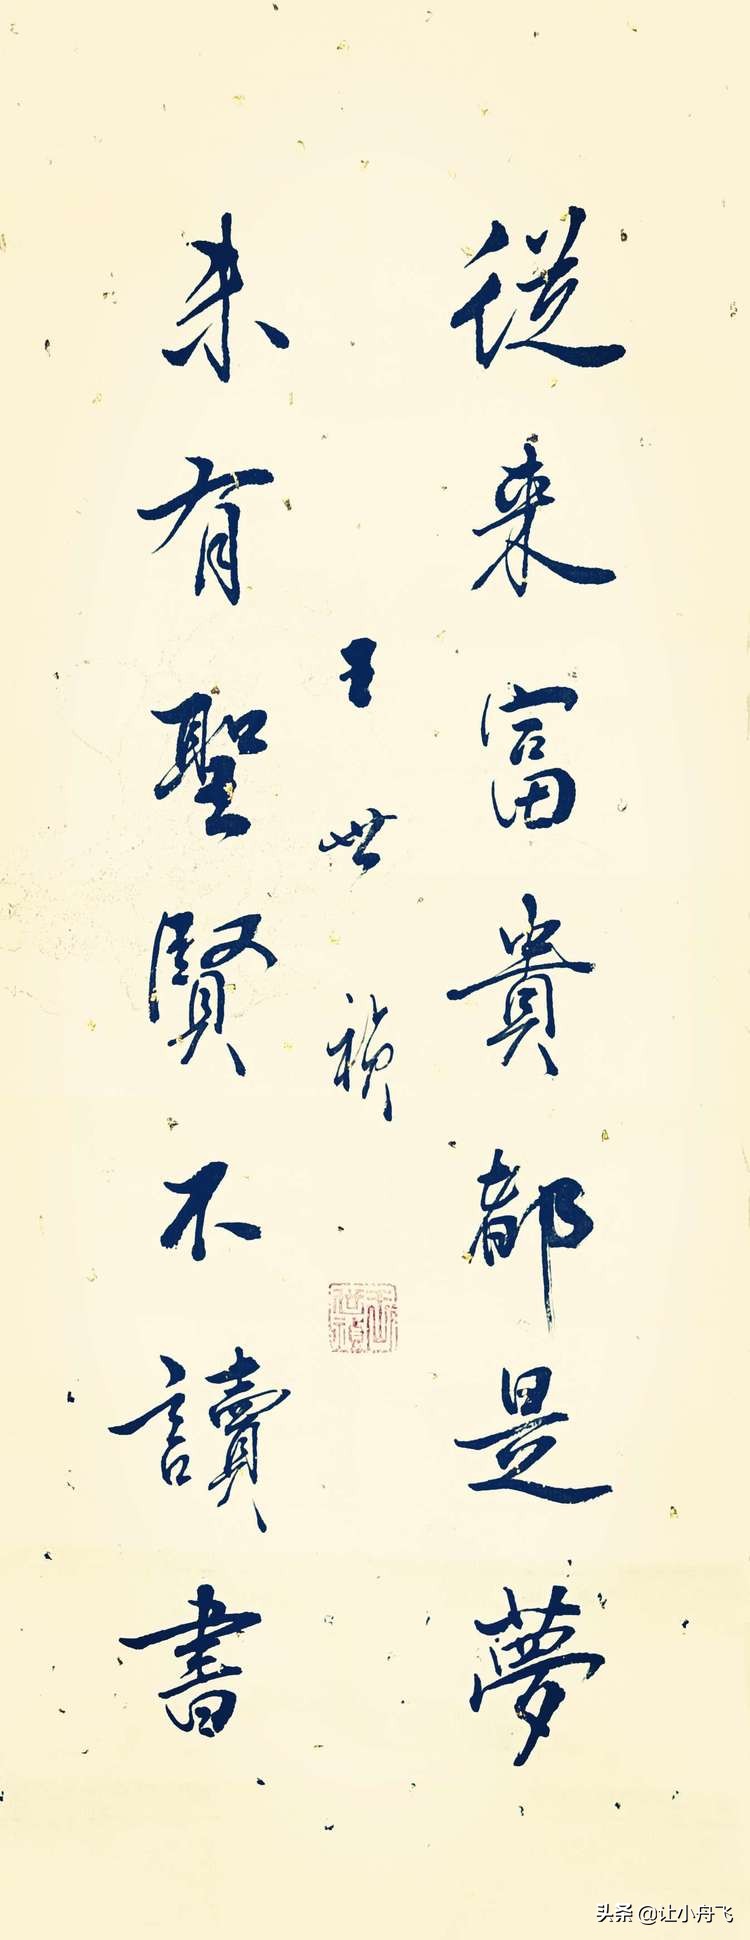 從来富貴都是夢
未有聖賢不讀書
王世禎
王世禎
头条 @让小舟飞